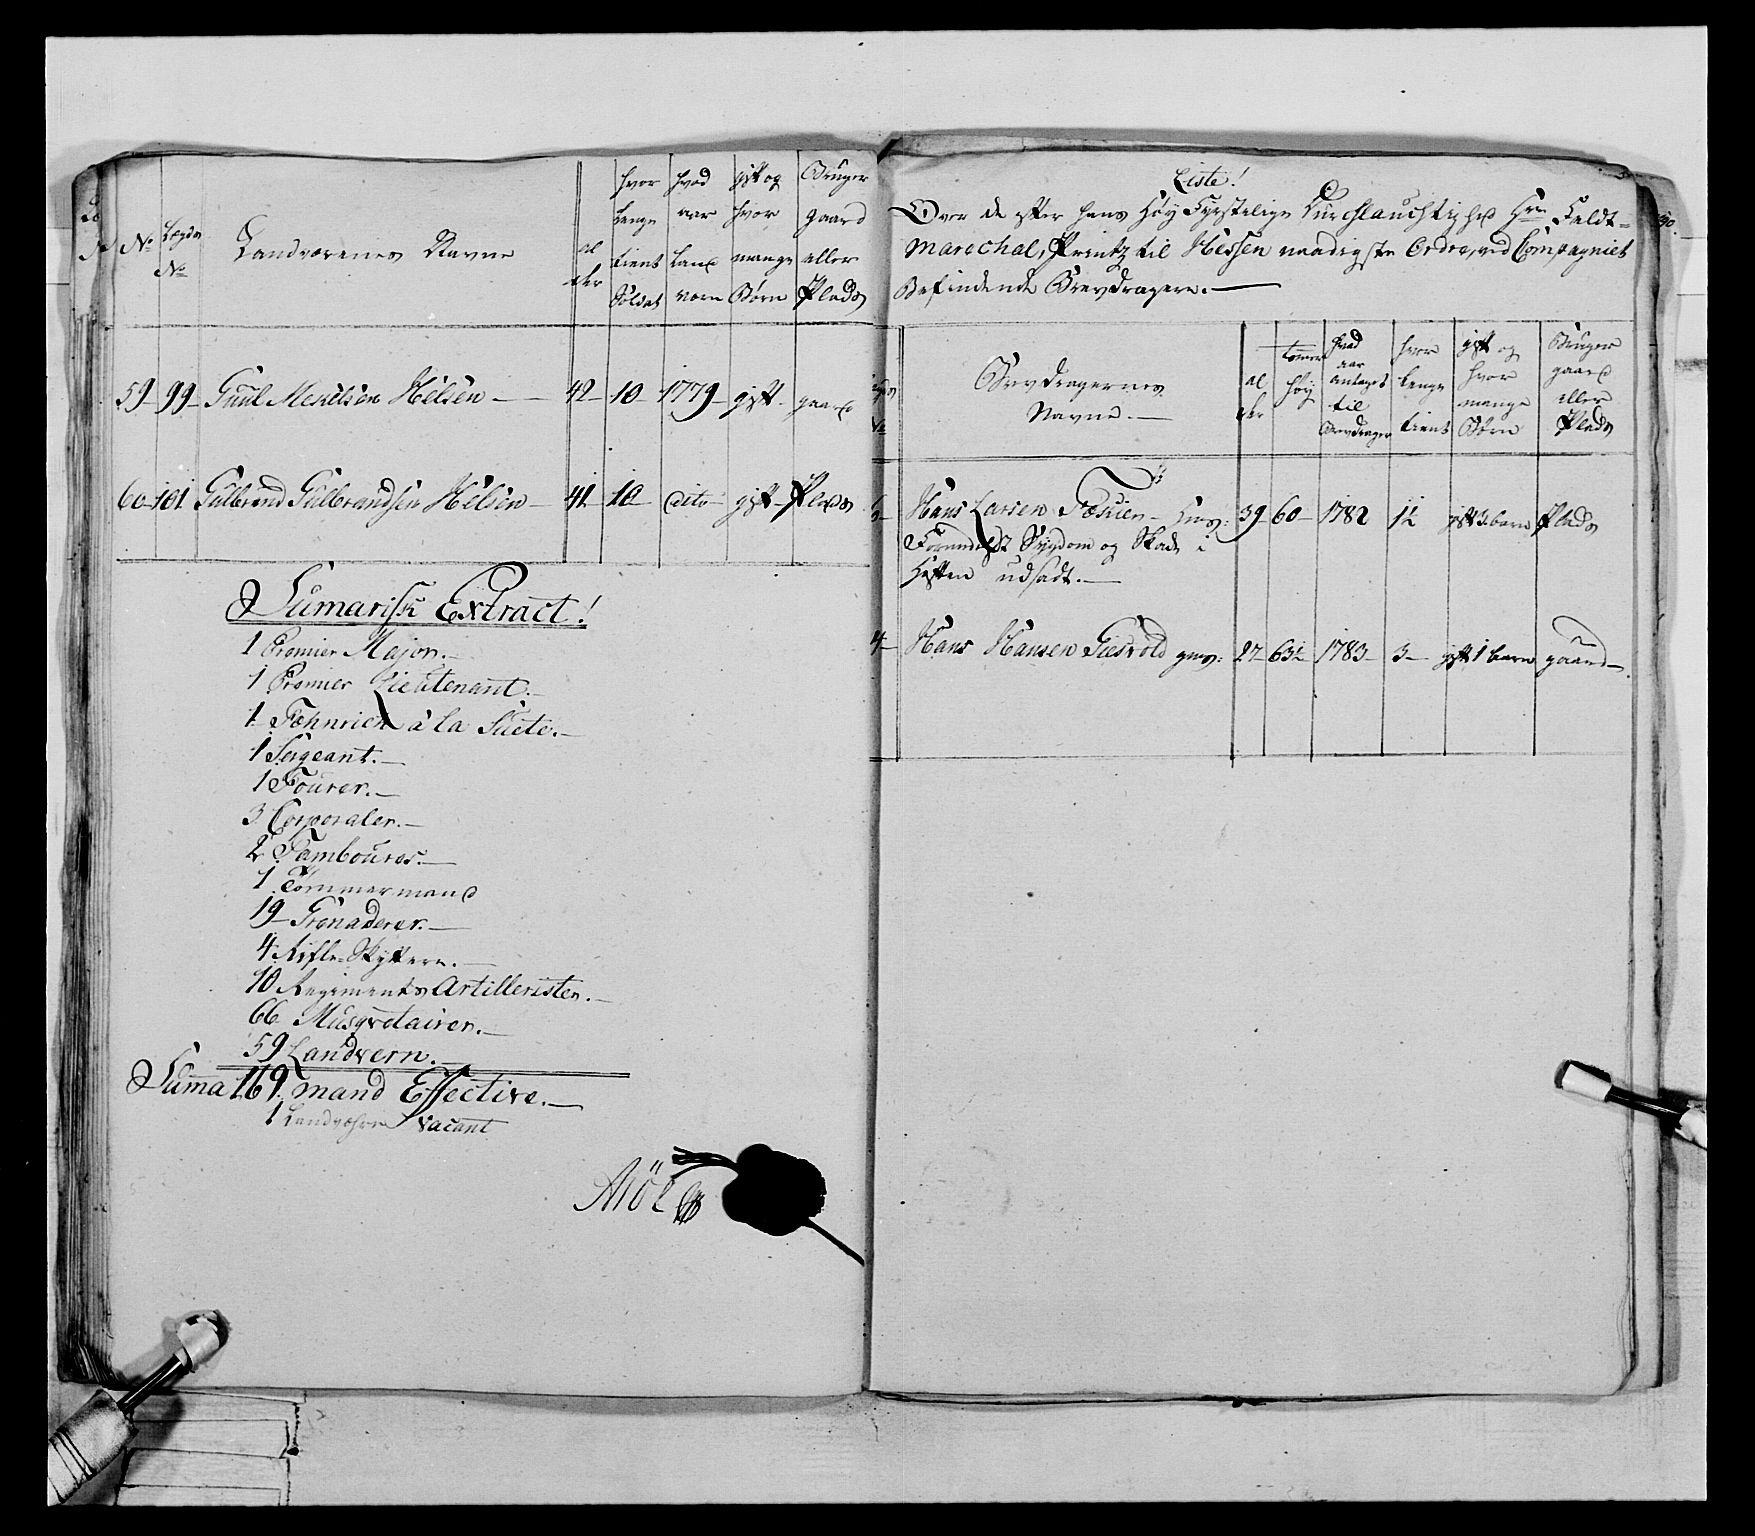 No
Lægds No
Landværnes Navne
al der
hvor lenge tient Soldat
hvad aar Land værn
gift og hvor mange Børn
Bruger gaard eller Plads
59 99 Guul Mekelsen Helsen 42 10 1779 gift gaard
60 101 Gulbrand Gulbrandsen Helsen 41 10 dito gift Plads
Sumarisk Extract!
1 Premier Major.
1 Premier Lieutenant.
1 Fæhnrich à la Suete.
1 Sergeant.
1 Fourer.
3 Corporaler.
2 Tambourer.
1 Tømmermand
19 Grenaderer.
4 Rifle-Skyttere.
10 Regiments Artillerister.
66 Musqvetairer.
59 Landvern.
Suma 169 mand Effective.
1 Landværn vacant
Liste!
Over de efter Hans Høy Fyrstelige Durchlauchtighed Hrr Feldt=
Marechal, Printz til Hessen naadigste Ordre, ved Compagniet
Befindende Brevdragere.
Brevdragernes Navne.
al der
tomer høy
hvad aar antaget til Brevdrager
hvor lenge tient
gift og hvor mange Børn
Bruger gaard eller Plads
Hans Larsen Foskien 39 60 1782 1½ gift 3 barn Plads
Formedelst Sygdom og Skade i
Hoften udsadt.
4 Hans Hansen Giesvold 27 63½ 1783 3 gift 1 barn gaard